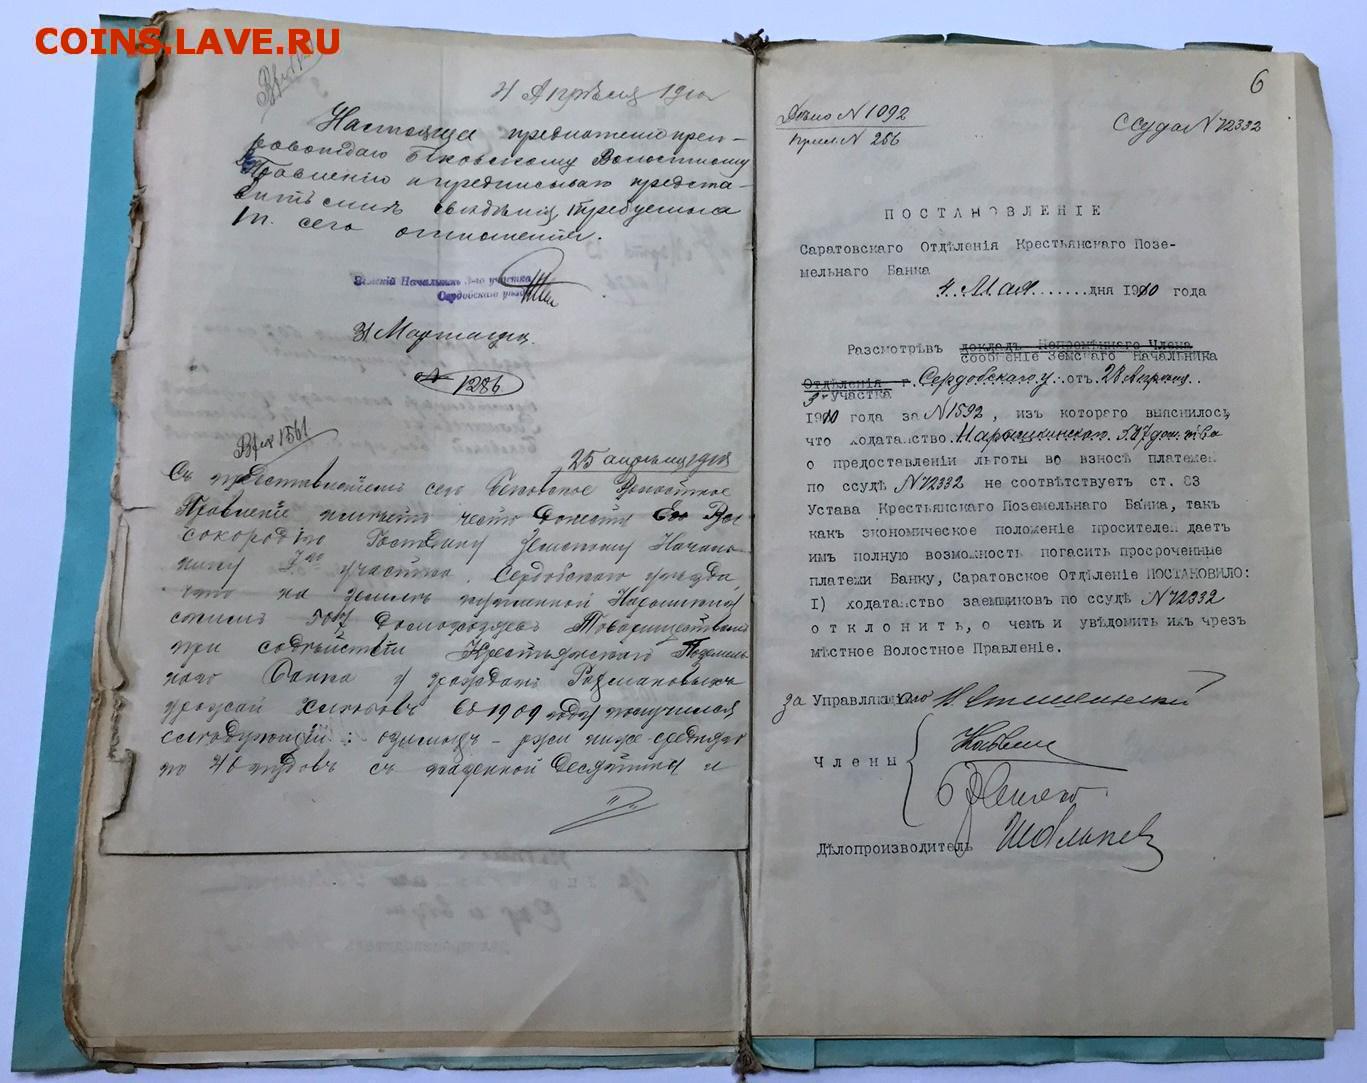 COINS.LAVE.RU
4 Апрѣля 1910
Настоящее предложение преп-
ровождаю Бековскому Волостному
Правленію и предписываю предста-
вить мнѣ свѣдѣнія, требуемыя
сего отношенія.
Земскій Начальникъ 3-го участка
Сердобскаго уѣзда
31 Марта
№ 1286
Вх № 1561
25 апрѣля 1910
Съ представленіемъ сего Бековское Волостное
Правленіе имѣетъ честь донести Его Вы
сокородію Господину Земскому Началь
нику участка, Сердобскаго уѣзда,
что на землѣ купленной Нарышкин
скимъ домохозяевъ Товариществомъ
при содѣйствіи Крестьянскаго Поземель
наго Банка у гражданъ
урожай хлѣбовъ въ 1909 году получился
слѣдующій: озимыхъ - ржи ниже средняго
по 40 пудовъ съ казенной десятины и
6
Дѣло № 1092
№ 256
Ссуда № 72332
ПОСТАНОВЛЕНІЕ
Саратовскаго Отдѣленія Крестьянскаго Позе-
мельнаго Банка
4 Мая дня 1910 года
Разсмотрѣвъ докладъ Непремѣннаго Члена
сообщеніе Земскаго Начальника
Отдѣленія г. Сердобскаго у. отъ 28 Апрѣля
3 участка
1910 года за № 1592, изъ котораго выяснилось,
что ходатайство Нарышкинскаго т-ва
о предоставленіи льготы во взносѣ платежей
по ссудѣ № 72332 не соотвѣтствуетъ ст. 83
Устава Крестьянскаго Поземельнаго Банка, такъ
какъ экономическое положеніе просителей даетъ
имъ полную возможность погасить просроченные
платежи Банку, Саратовское Отдѣленіе ПОСТАНОВИЛО:
I) ходатайство заемщиковъ по ссудѣ № 72332
отклонить, о чемъ и уведомить ихъ чрезъ
мѣстное Волостное Правленіе.
за Управляющаго
Члены
Дѣлопроизводитель